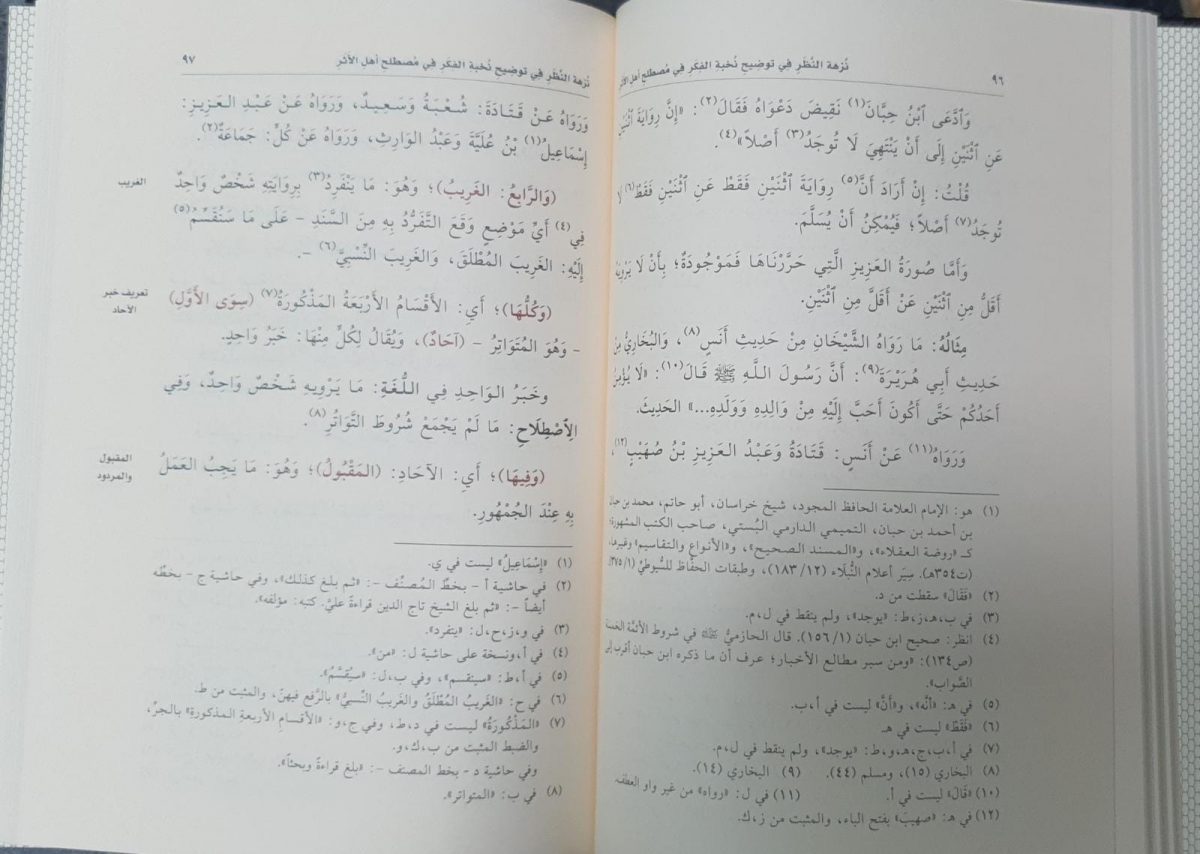 ٩٦
نُزهة النَّظَرِ في توضِيحِ نُخبةِ الفِكَرِ في مُصطلحِ أهلِ الأثرِ
وَٱدَّعَى ٱبْنُ حِبَّانَ(١) نَقِيضَ دَعْوَاهُ فَقَالَ(٢): «إِنَّ رِوَايَةَ ٱثْنَيْنِ
عَنِ ٱثْنَيْنِ إِلَى أَنْ يَنْتَهِيَ لَا تُوجَدُ(٣) أَصْلاً»(٤).
قُلْتُ: إِنْ أَرَادَ أَنَّ(٥) رِوَايَةَ ٱثْنَيْنِ فَقَطْ عَنِ ٱثْنَيْنِ فَقَطْ(٦) لَا
تُوجَدُ(٧) أَصْلاً؛ فَيُمْكِنُ أَنْ يُسَلَّمَ.
وَأَمَّا صُورَةُ العَزِيزِ الَّتِي حَرَّرْنَاهَا فَمَوْجُودَةٌ؛ بِأَنْ لَا يَرْوِيَهُ
أَقَلُّ مِنِ ٱثْنَيْنِ عَنْ أَقَلَّ مِنِ ٱثْنَيْنِ.
مِثَالُهُ: مَا رَوَاهُ الشَّيْخَانِ مِنْ حَدِيثِ أَنَسٍ(٨)، وَالبُخَارِيُّ مِنْ
حَدِيثِ أَبِي هُرَيْرَةَ(٩): أَنَّ رَسُولَ اللَّهِ ﷺ قَالَ(١٠): «لَا يُؤْمِنُ
أَحَدُكُمْ حَتَّى أَكُونَ أَحَبَّ إِلَيْهِ مِنْ وَالِدِهِ وَوَلَدِهِ...» الحَدِيثَ.
وَرَوَاهُ(١١) عَنْ أَنَسٍ: قَتَادَةُ وَعَبْدُ العَزِيزِ بْنُ صُهَيْبٍ(١٢)،
(١) هو: الإمام العلامة الحافظ المجود، شيخ خراسان، أبو حاتم، محمد بن حبان
بن أحمد بن حبان، التميمي الدارمي البُستي، صاحب الكتب المشهورة؛
كـ «روضة العقلاء»، و«المسند الصحيح»، و«الأنواع والتقاسيم» وغيرها،
(ت٣٥٤هـ). سِيَر أعلام النُّبلاء (١٢/ ١٨٣)، وطبقات الحفَّاظ للسُّيوطيِّ (١/ ٣٧٥).
(٢) «فَقَالَ» سقطت من د.
(٣) في ب،هـ،ز،ط: «يوجد»، ولم ينقط في ل،م.
(٤) انظر: صحيح ابن حبان (١/ ١٥٦). قال الحازميُّ ﵀ في شروط الأئمَّة الخمسة
(ص١٣٤): «ومن سبر مطالع الأخبار؛ عرف أن ما ذكره ابن حبان أقرب إلى
الصَّواب».
(٥) في هـ: «أنَّه»، و«أنَّ» ليست في أ،ب.
(٦) «فَقَطْ» ليست في هـ.
(٧) في أ،ب،ج،هـ،و،ط: «يوجد»، ولم ينقط في ل،م.
(٨) البخاري (١٥)، ومسلم (٤٤). (٩) البخاري (١٤).
(١٠) «قَالَ» ليست في أ. (١١) في ل: «رواه» من غير واو العطف.
(١٢) في هـ: «صهيبَ» بفتح الباء، والمثبت من ز،ك.
نُزهة النَّظَرِ في توضِيحِ نُخبةِ الفِكَرِ في مُصطلحِ أهلِ الأثرِ
٩٧
وَرَوَاهُ عَنْ قَتَادَةَ: شُعْبَةُ وَسَعِيدٌ، وَرَوَاهُ عَنْ عَبْدِ العَزِيزِ:
إِسْمَاعِيلُ(١) بْنُ عُلَيَّةَ وَعَبْدُ الوَارِثِ، وَرَوَاهُ عَنْ كُلٍّ: جَمَاعَةٌ(٢).
(وَالرَّابِعُ: الغَرِيبُ)؛ وَهُوَ: مَا يَنْفَرِدُ(٣) بِرِوَايَتِهِ شَخْصٌ وَاحِدٌ
الغريب
فِي(٤) أَيِّ مَوْضِعٍ وَقَعَ التَّفَرُّدُ بِهِ مِنَ السَّنَدِ - عَلَى مَا سَنُقَسِّمُ(٥)
إِلَيْهِ: الغَرِيبَ المُطْلَقَ، وَالغَرِيبَ النِّسْبِيَّ(٦) -.
(وَكُلُّهَا)؛ أَيِ: الأَقْسَامُ الأَرْبَعَةُ المَذْكُورَةُ(٧) (سِوَى الأَوَّلِ)
تعريف خبر
الآحاد
- وَهُوَ المُتَوَاتِرُ - (آحَادٌ)، وَيُقَالُ لِكُلٍّ مِنْهَا: خَبَرُ وَاحِدٍ.
وَخَبَرُ الوَاحِدِ فِي اللُّغَةِ: مَا يَرْوِيهِ شَخْصٌ وَاحِدٌ، وَفِي
الِٱصْطِلَاحِ: مَا لَمْ يَجْمَعْ شُرُوطَ التَّوَاتُرِ(٨).
(وَفِيهَا)؛ أَيِ: الآحَادِ: (المَقْبُولُ)؛ وَهُوَ: مَا يَجِبُ العَمَلُ
المقبول
والمردود
بِهِ عِنْدَ الجُمْهُورِ.
(١) «إِسْمَاعِيلُ» ليست في ي.
(٢) في حاشية أ - بخطِّ المُصنِّف -: «ثم بلغ كذلك»، وفي حاشية ج - بخطِّه
أيضاً -: «ثم بلغ الشيخ تاج الدين قراءةً عليَّ. كتبه: مؤلفه».
(٣) في و،ز،ح،ل: «يتفرد».
(٤) في أ،ونسخة على حاشية ل: «من».
(٥) في أ،ط: «سينقسم»، وفي ب،ل: «سيُقسَّمُ».
(٦) في ح: «الغَرِيبُ المُطْلَقُ وَالغَرِيبُ النِّسبيُّ» بالرَّفع فيهنّ، والمثبت من ط.
(٧) «المَذْكُورَةُ» ليست في د،ط، وفي ج،و: «الأقسامِ الأربعةِ المذكورةِ» بالجرِّ،
والضبط المثبت من ب،ك،و.
وفي حاشية د - بخط المصنف -: «بلغ قراءةً وبحثاً».
(٨) في ب: «المتواتر».